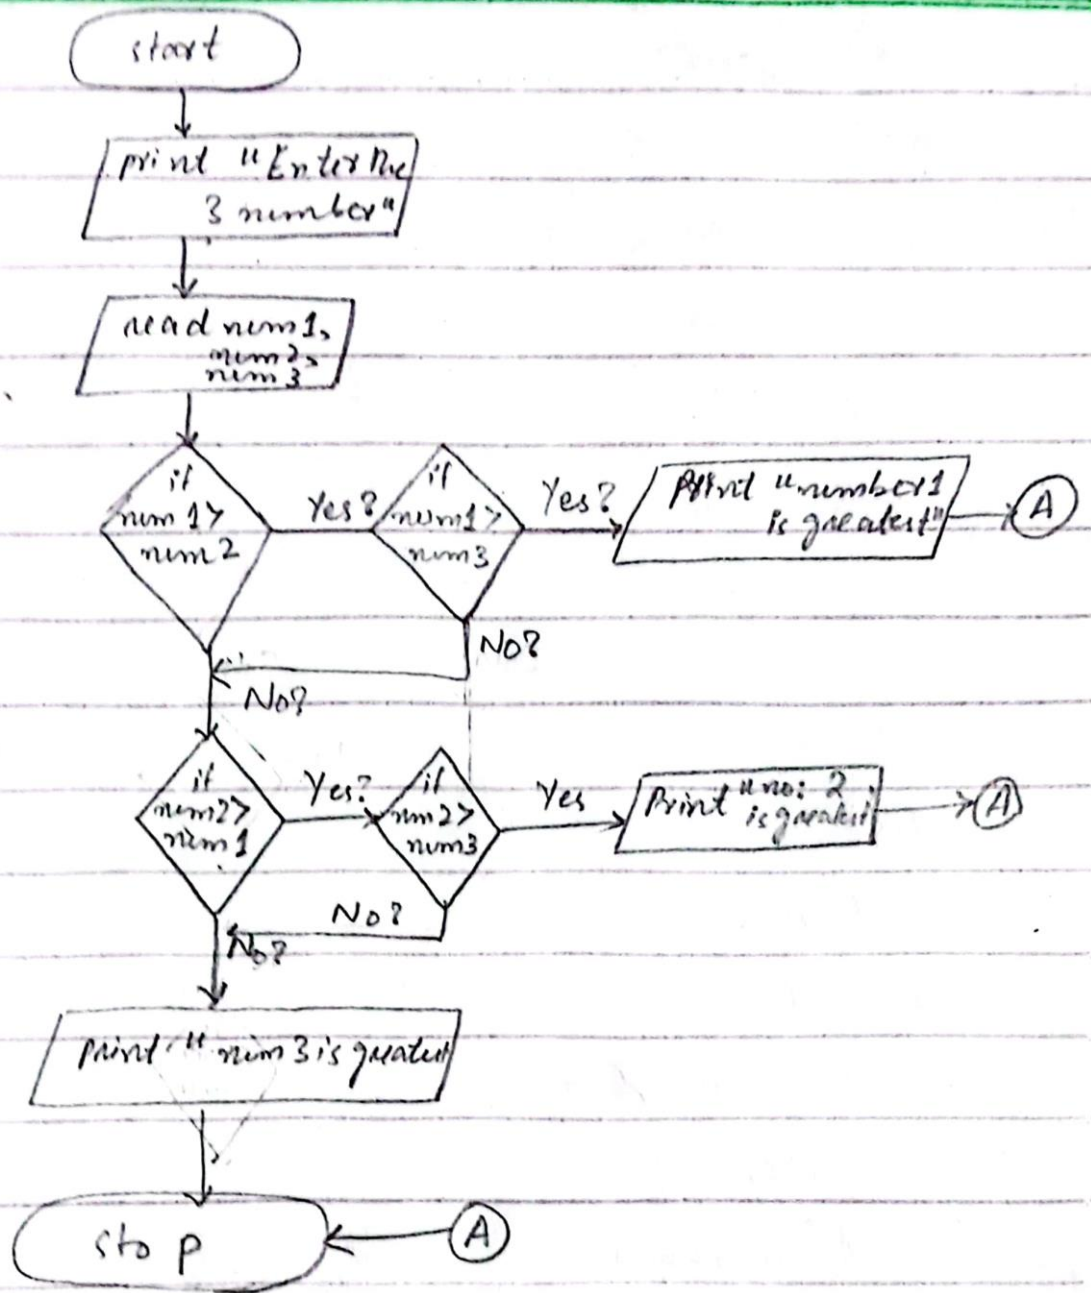 start
print "Enter the
3 number"
read num1,
num2,
num3
if
num1>
num2
Yes?
if
num1>
num3
Yes?
Print "number1
is greatest"
A
No?
No?
if
num2>
num1
Yes?
if
num2>
num3
Yes
Print "no: 2
is greatest
A
No?
No?
print "num3 is greatest
stop
A